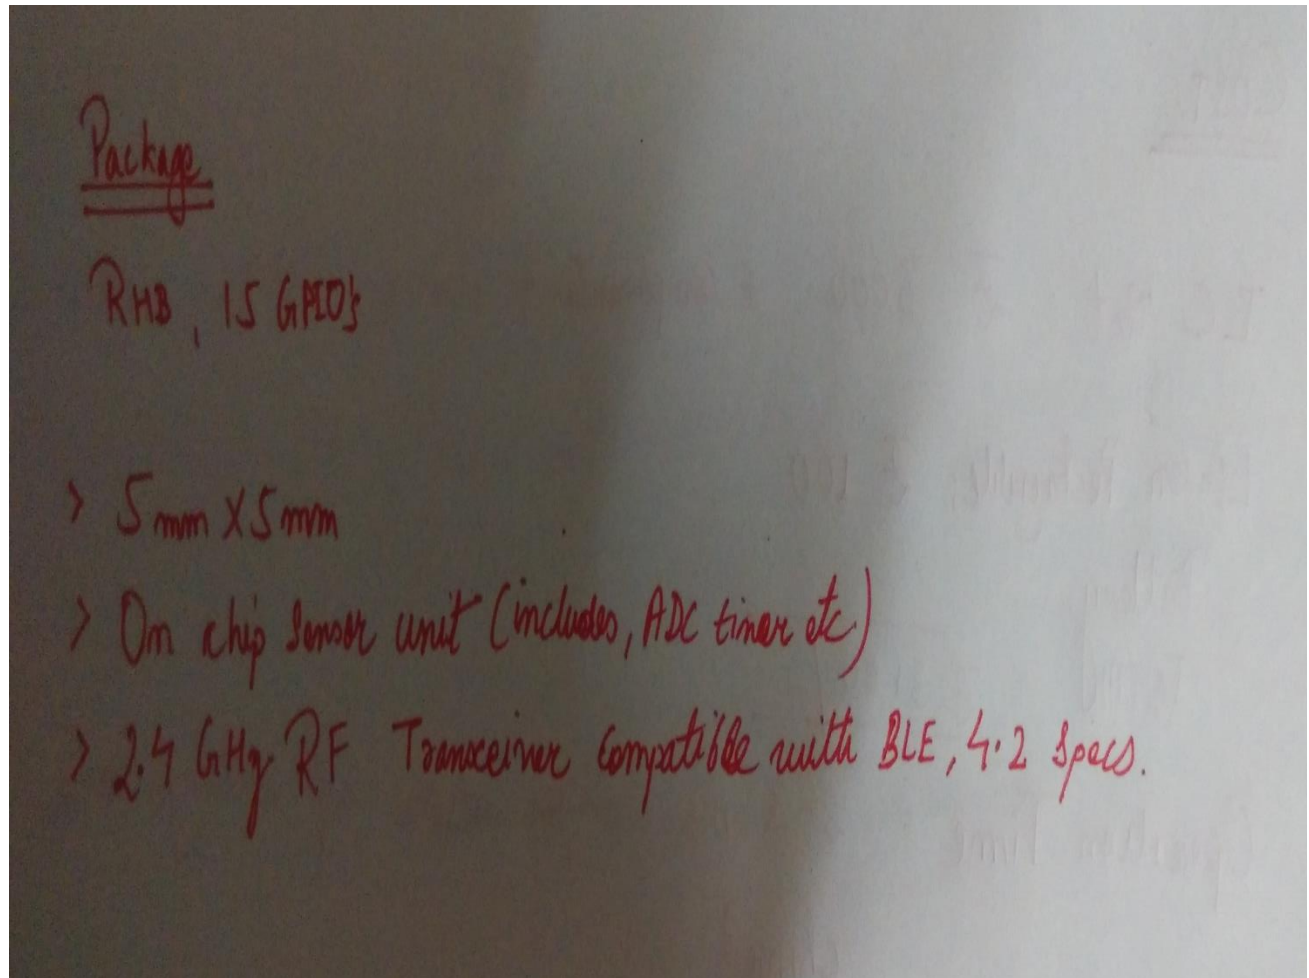 Package
RHB, 15 GPIO's
> 5mm X 5mm
> On chip Sensor unit (includes, ADC timer etc)
> 2.4 GHz RF Transceiver compatible with BLE, 4.2 specs.